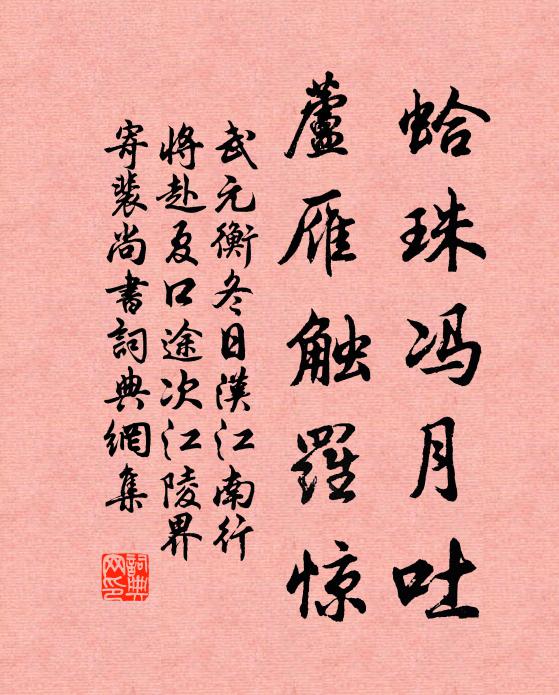 蛤珠冯月吐
蘆雁触羅惊
武元衡冬日漢江南行
将赴夏口途次江陵界
寄裴尚書詞典網集
詞典
网印